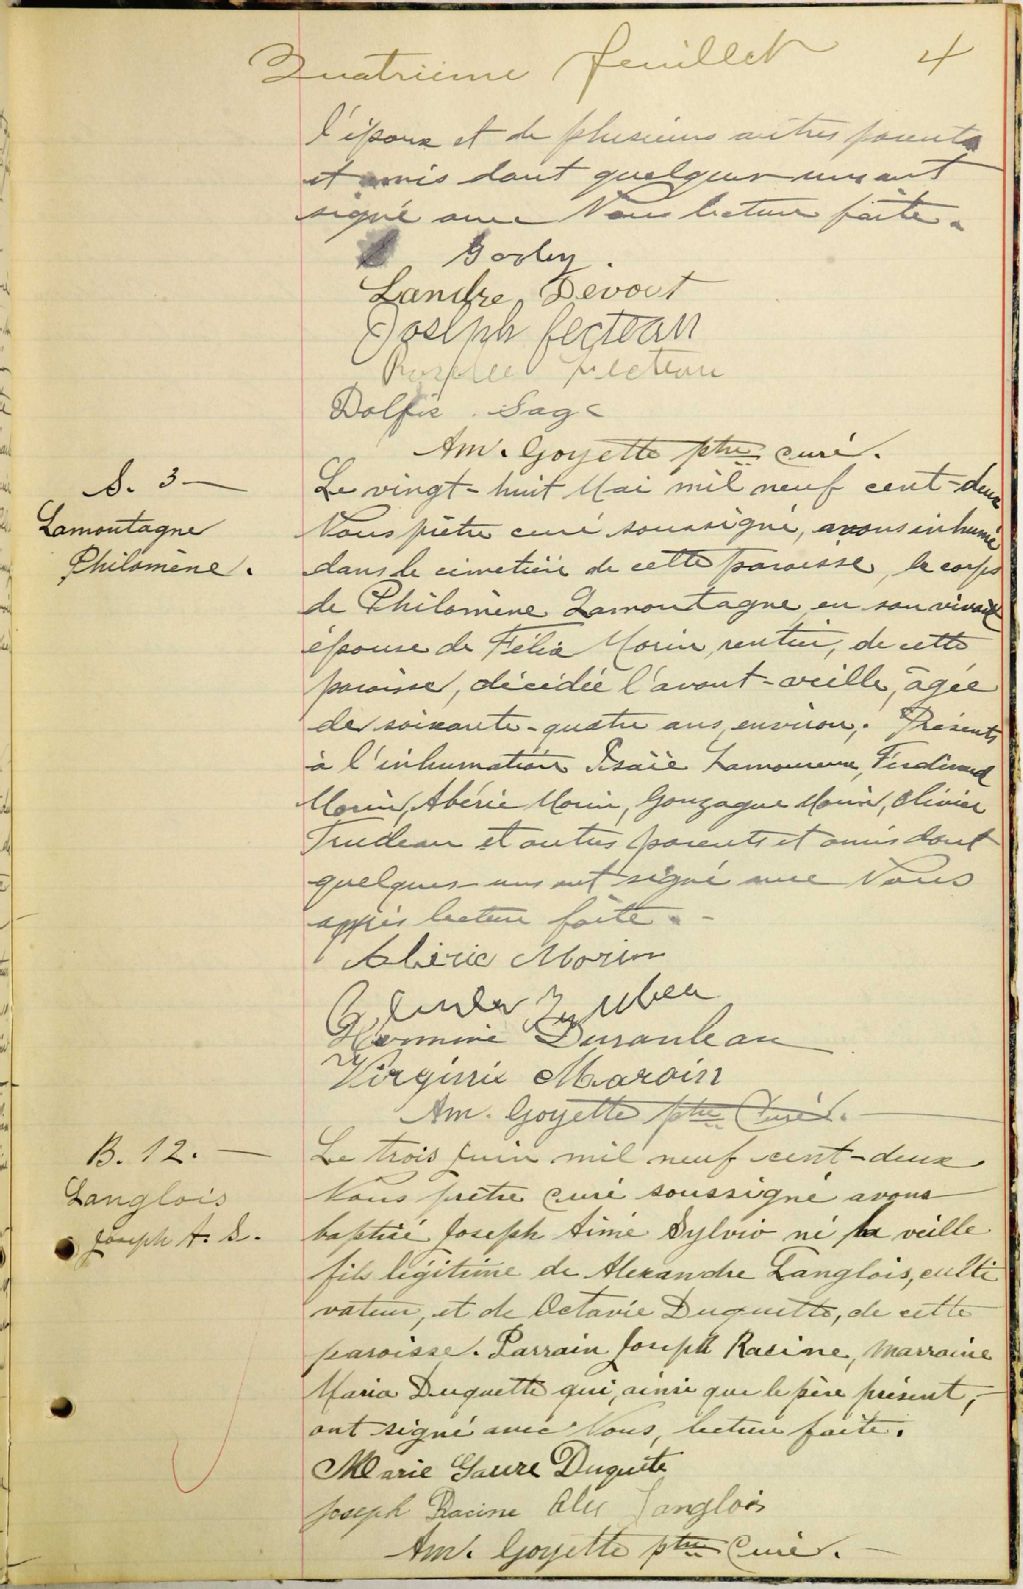 Quatrième feuillet 4
l'époux et de plusieurs autres parents
et amis dont quelques-uns ont
signé avec Nous lecture faite.
Godey.
Landre Dévout
Joseph Fecteau
Rosalie Fecteau
Dolfis Sage
Am. Goyette ptre curé.
S. 3 —
Lamontagne
Philomène.
Le vingt-huit Mai mil neuf cent-deux
Nous prêtre curé soussigné, avons inhumé
dans le cimetière de cette paroisse, le corps
de Philomène Lamontagne, en son vivant
épouse de Félix Morin, rentier, de cette
paroisse, décédée l'avant-veille, âgée
de soixante-quatre ans, environ. Présents
à l'inhumation Isaïe Lamoureux, Ferdinand
Morin, Abéric Morin, Gonzague Morin, Olivier
Trudeau et autres parents et amis dont
quelques-uns ont signé avec Nous
après lecture faite. -
Albéric Morin
Hermine Duranleau
Virginie Maroin
Am. Goyette ptre Curé. —
B. 12. —
Langlois
Joseph A. S.
Le trois Juin mil neuf cent-deux
Nous prêtre Curé soussigné avons
baptisé Joseph Aimé Sylvio né la veille
fils légitime de Alexandre Langlois, culti
vateur, et de Octavie Duquette, de cette
paroisse. Parrain Joseph Racine, marraine
Maria Duquette qui, ainsi que le père présent,
ont signé avec Nous, lecture faite.
Marie Laure Duquete
Joseph Racine Alex Langlois
Am. Goyette ptre Curé. —